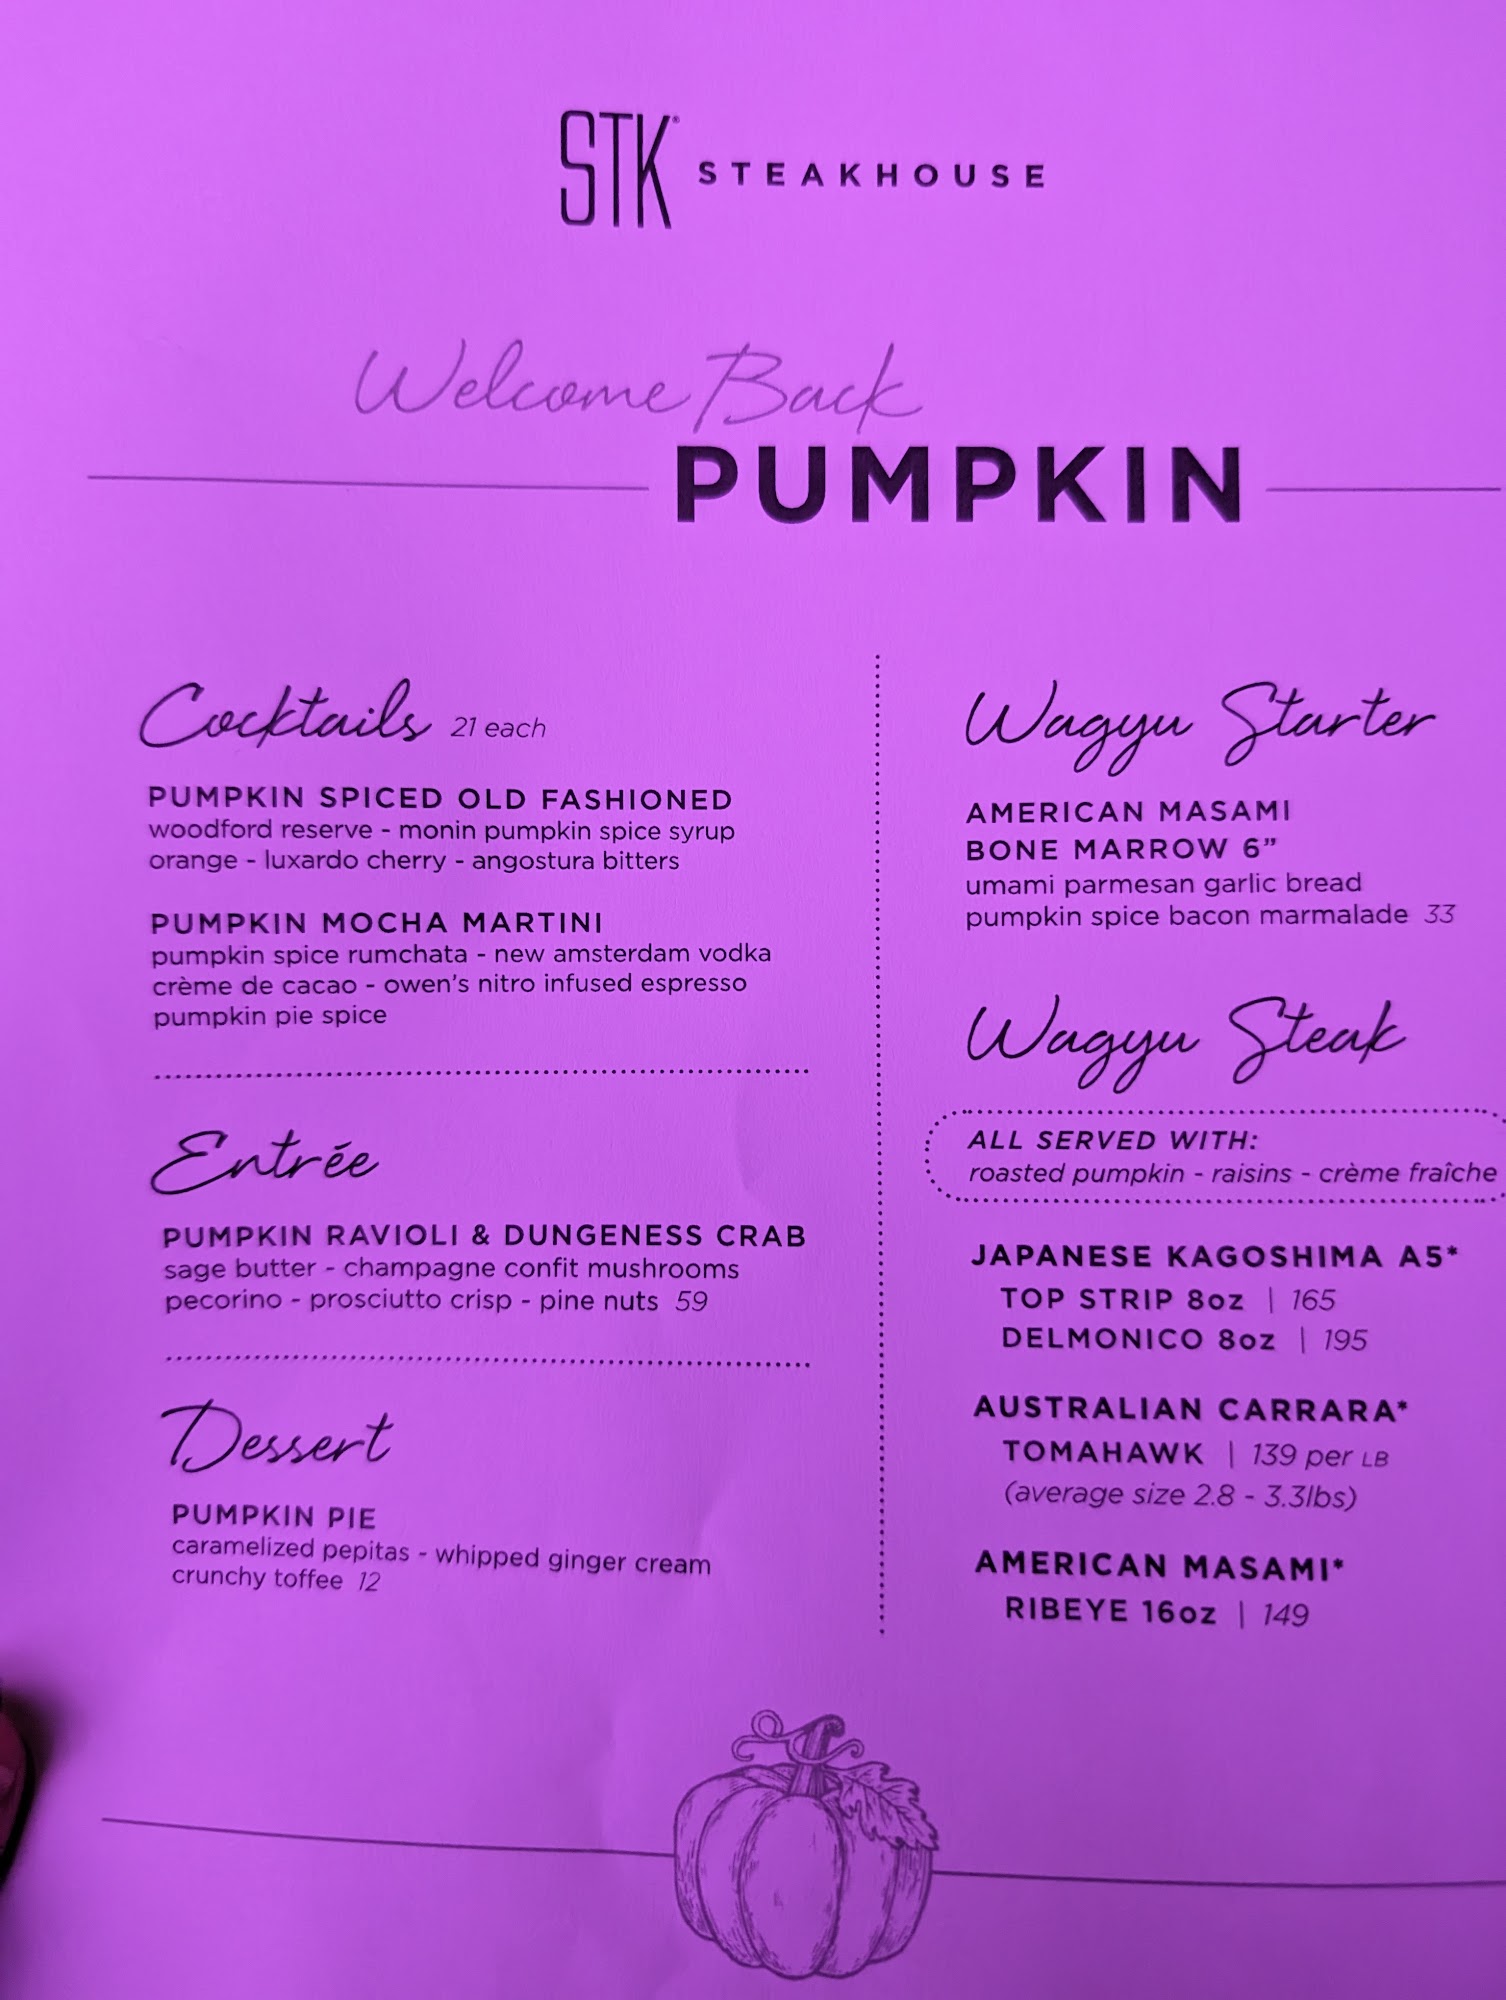 STK® STEAKHOUSE
Welcome Back
PUMPKIN
Cocktails 21 each
PUMPKIN SPICED OLD FASHIONED
woodford reserve - monin pumpkin spice syrup
orange - luxardo cherry - angostura bitters
PUMPKIN MOCHA MARTINI
pumpkin spice rumchata - new amsterdam vodka
crème de cacao - owen's nitro infused espresso
pumpkin pie spice
Entrée
PUMPKIN RAVIOLI & DUNGENESS CRAB
sage butter - champagne confit mushrooms
pecorino - prosciutto crisp - pine nuts 59
Dessert
PUMPKIN PIE
caramelized pepitas - whipped ginger cream
crunchy toffee 12
Wagyu Starter
AMERICAN MASAMI
BONE MARROW 6”
umami parmesan garlic bread
pumpkin spice bacon marmalade 33
Wagyu Steak
ALL SERVED WITH:
roasted pumpkin - raisins - crème fraîche
JAPANESE KAGOSHIMA A5*
TOP STRIP 8oz | 165
DELMONICO 8oz | 195
AUSTRALIAN CARRARA*
TOMAHAWK | 139 per LB
(average size 2.8 - 3.3lbs)
AMERICAN MASAMI*
RIBEYE 16oz | 149